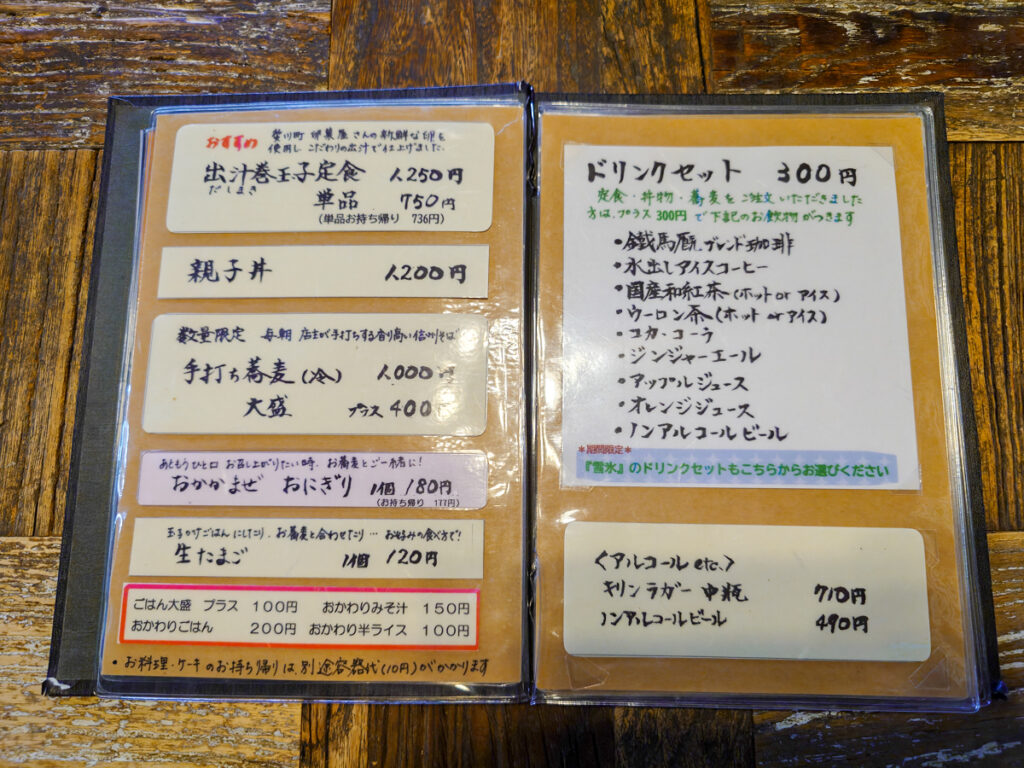 おすすめ
栄川町 卵菓屋さんの新鮮な卵を
使用し こだわりの出汁で仕上げました。
出汁巻玉子定食 1,250円
だしまき
単品 750円
(単品お持ち帰り 736円)
親子丼 1,200円
数量限定 毎朝 店主が手打ちする香り高い信州そば
手打ち蕎麦(冷) 1,000円
大盛 プラス 400
あともうひと口 お召し上がりたい時、お蕎麦とご一緒に!
おかかまぜ おにぎり 1個 180円
(お持ち帰り 177円)
玉子かけごはんにしたり、お蕎麦と合わせたり… お好みの食べ方で!
生たまご 1個 120円
ごはん大盛 プラス 100円 おかわりみそ汁 150円
おかわりごはん 200円 おかわり半ライス 100円
・お料理・ケーキのお持ち帰りは別途容器代(10円)がかかります
ドリンクセット 300円
定食・丼物・蕎麦をご注文いただきました
方は、プラス300円で下記のお飲物がつきます
・鐵馬厩ブレンド珈琲
・水出しアイスコーヒー
・国産和紅茶(ホット or アイス)
・ウーロン茶(ホット or アイス)
・コカ・コーラ
・ジンジャーエール
・アップルジュース
・オレンジジュース
・ノンアルコールビール
*期間限定*
『雪氷』のドリンクセットもこちらからお選びください
〈アルコール etc.〉
キリンラガー 中瓶 710円
ノンアルコールビール 490円